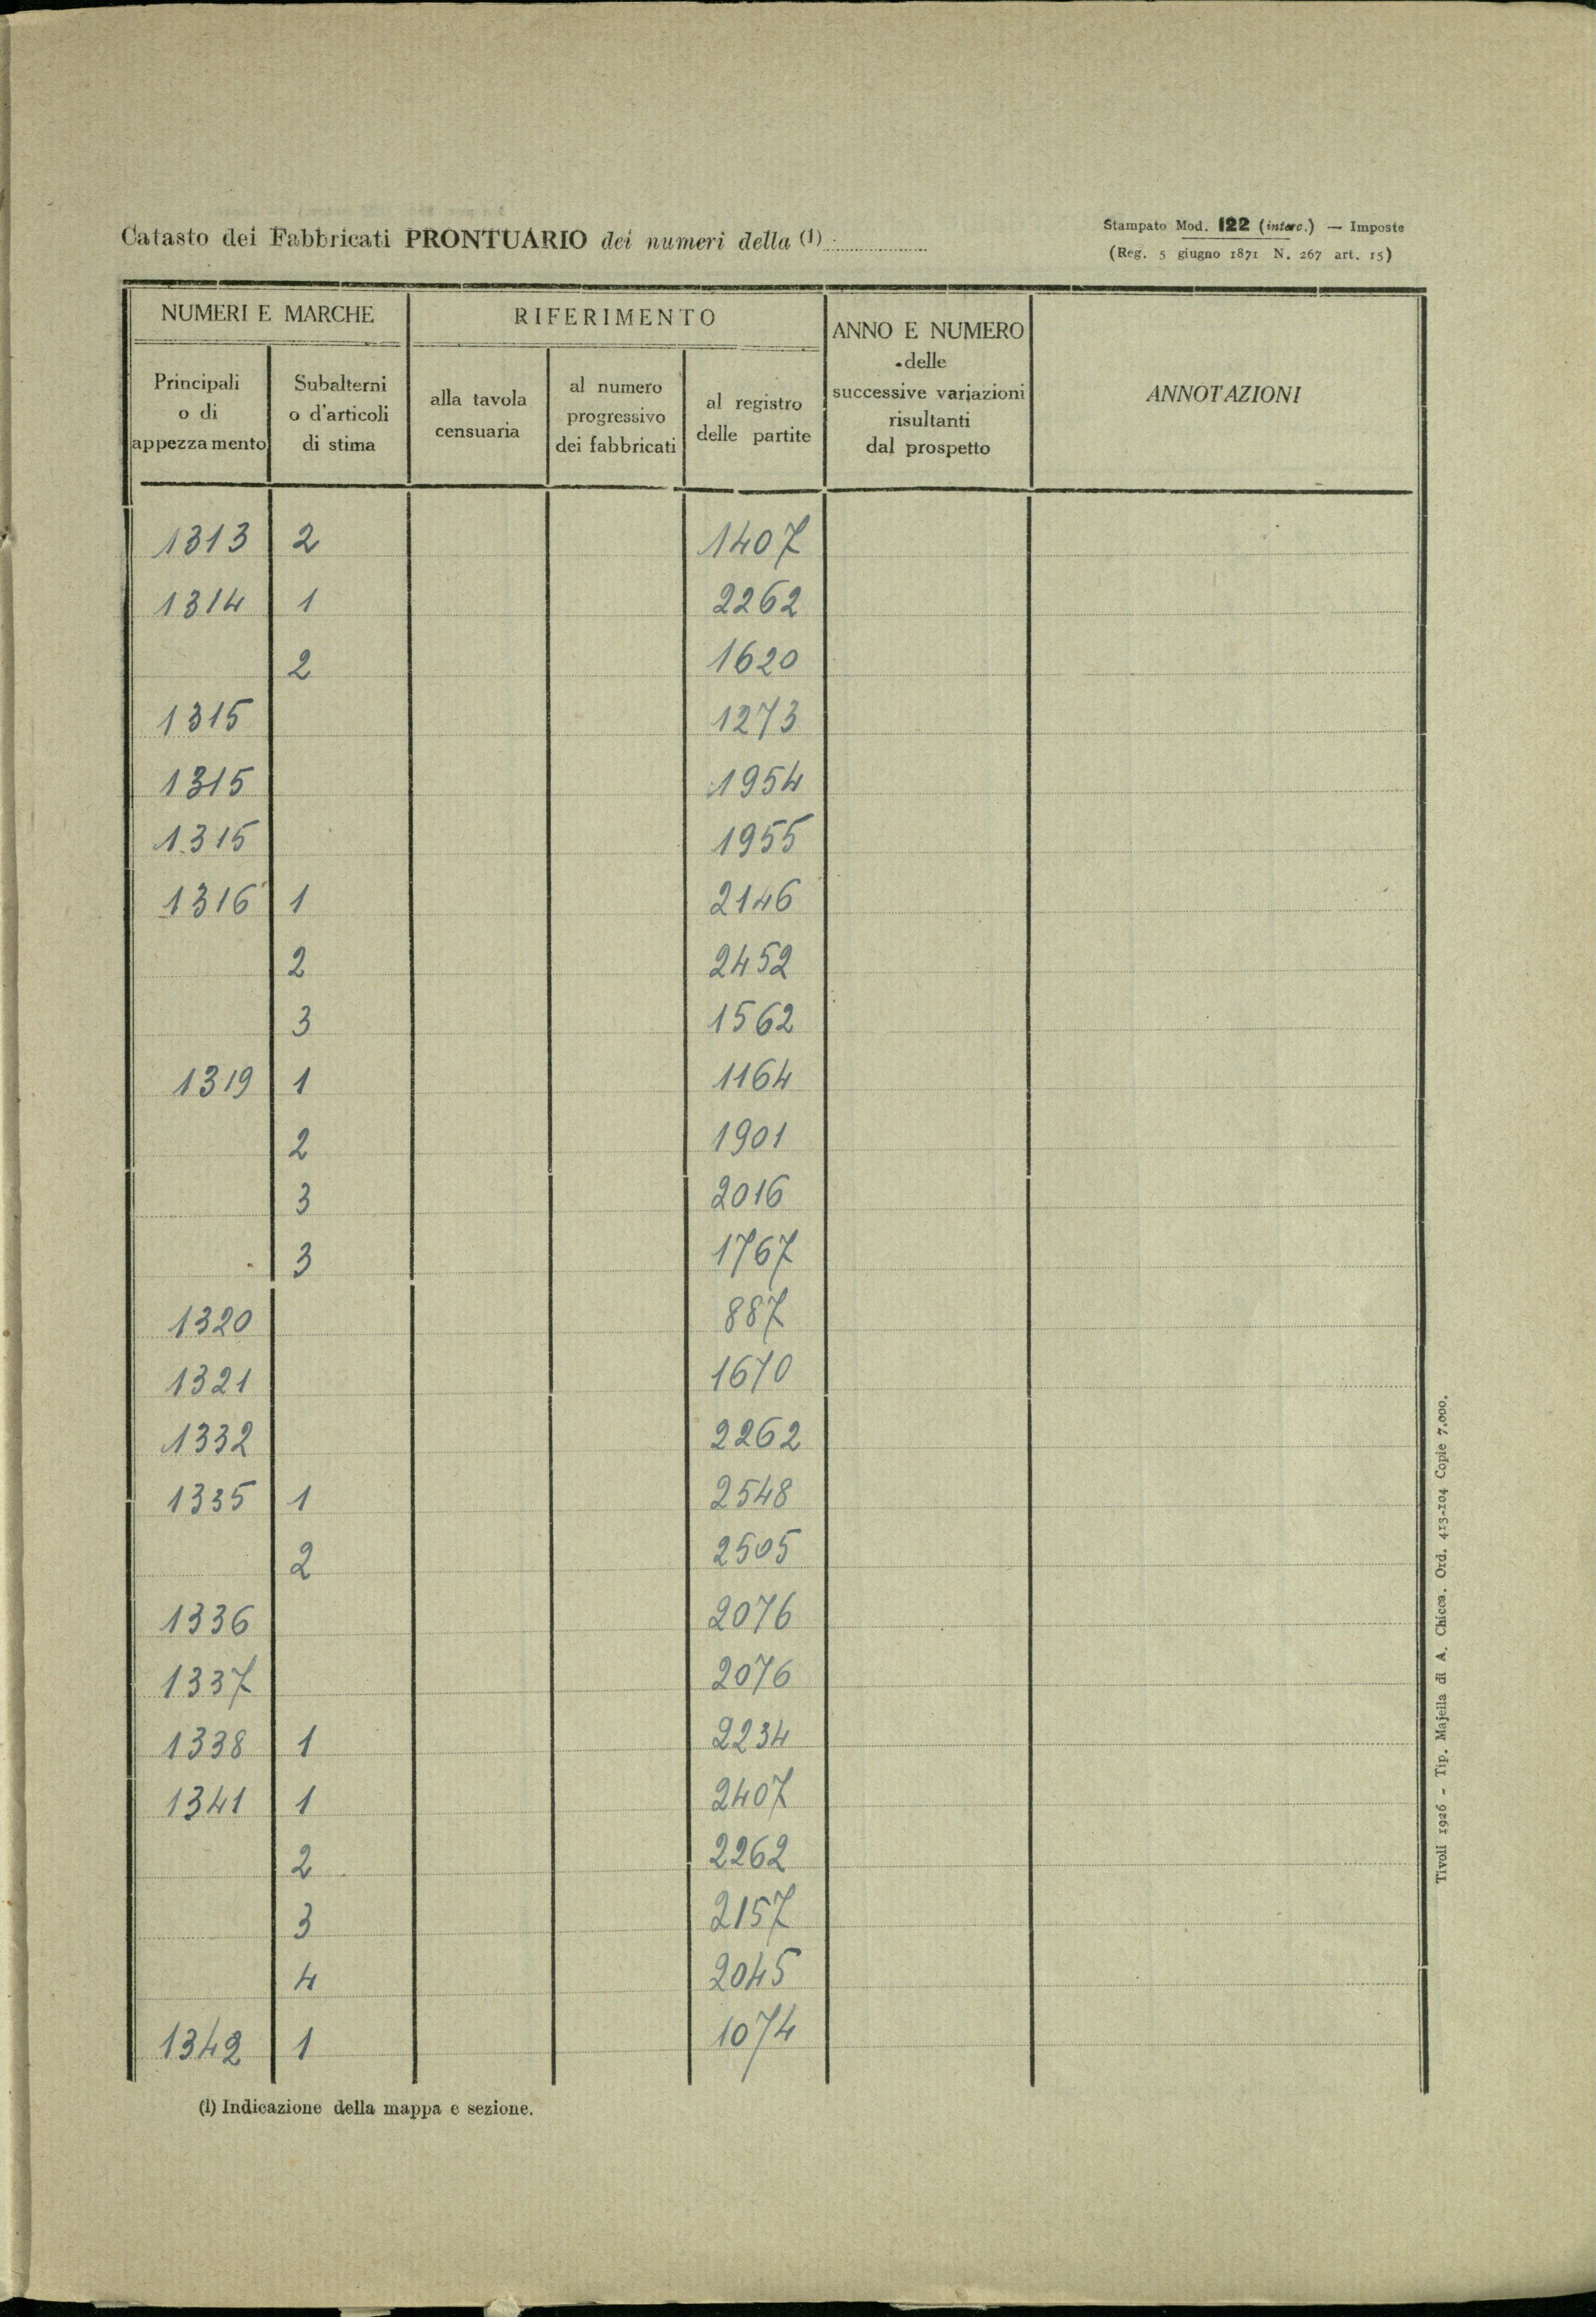 Catasto dei Fabbricati PRONTUARIO dei numeri della (1)
Stampato Mod. 122 (interc.) — Imposte
(Reg. 5 giugno 1871 N. 267 art. 15)
NUMERI E MARCHE
RIFERIMENTO
ANNO E NUMERO
delle
successive variazioni
risultanti
dal prospetto
ANNOTAZIONI
Principali
o di
appezzamento
Subalterni
o d'articoli
di stima
alla tavola
censuaria
al numero
progressivo
dei fabbricati
al registro
delle partite
1313 2 1407
1314 1 2262
2 1620
1315 1273
1315 1954
1315 1955
1316 1 2146
2 2452
3 1562
1319 1 1164
2 1901
3 2016
3 1767
1320 887
1321 1670
1332 2262
1335 1 2548
2 2505
1336 2076
1337 2076
1338 1 2234
1341 1 2407
2 2262
3 2157
4 2045
1342 1 1074
(1) Indicazione della mappa e sezione.
Tivoli 1926 - Tip. Majella di A. Chicca. Ord. 413-104 Copie 7.000.